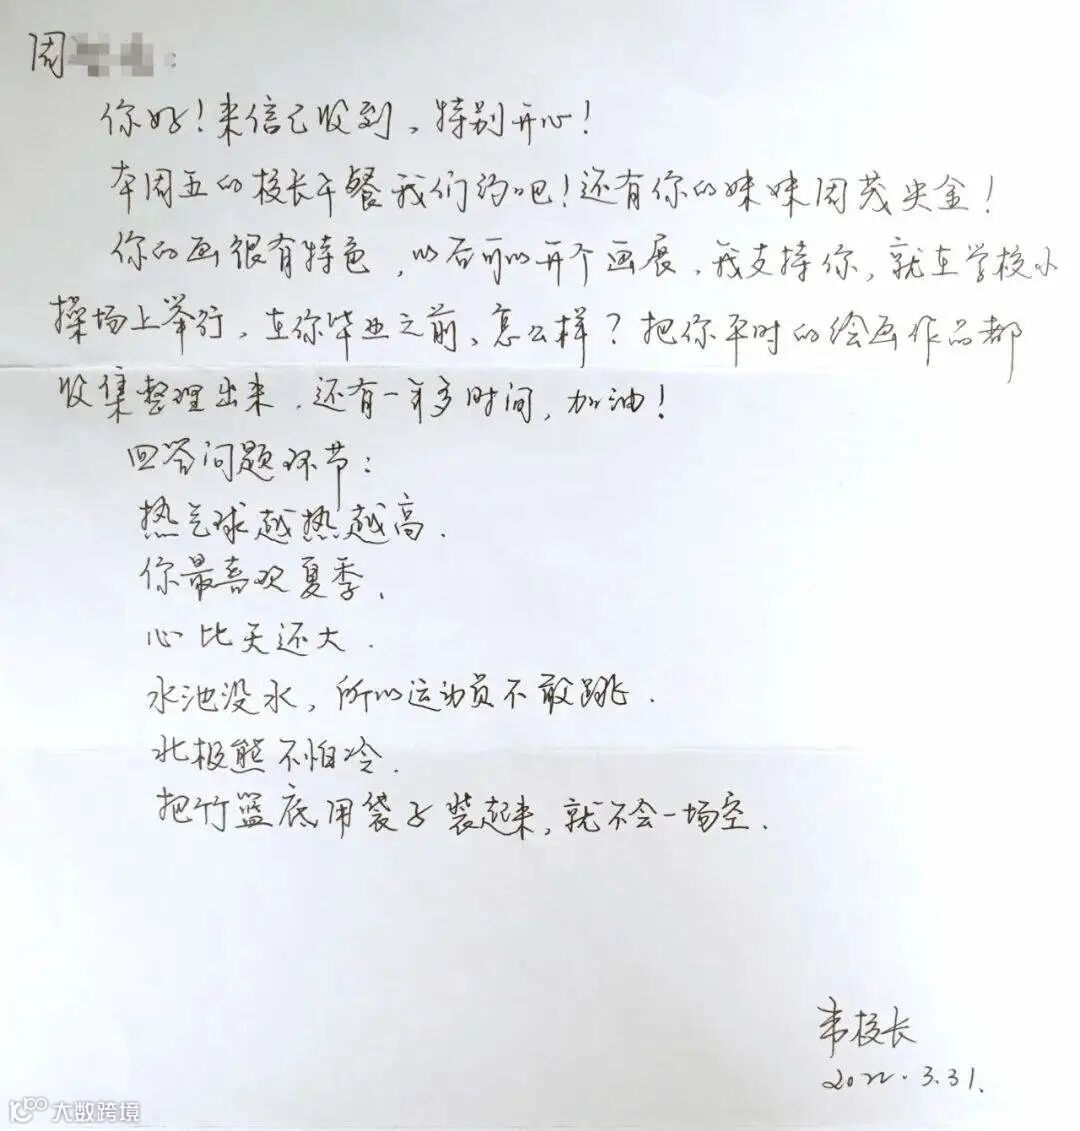 周
你好！来信已收到，特别开心！
本周五的校长午餐我们约吧！还有你的妹妹周茂尖金！
你的画很有特色，以后可以开个画展，我支持你，就在学校小
操场上举行，在你毕业之前，怎么样？把你平时的绘画作品都
收集整理出来，还有一年多时间，加油！
回答问题环节：
热气球越热越高．
你最喜欢夏季．
心比天还大．
水池没水，所以运动员不敢跳．
北极熊不怕冷．
把竹篮底用袋子装起来，就不会一场空．
韦校长
2022.3.31.
大数跨境